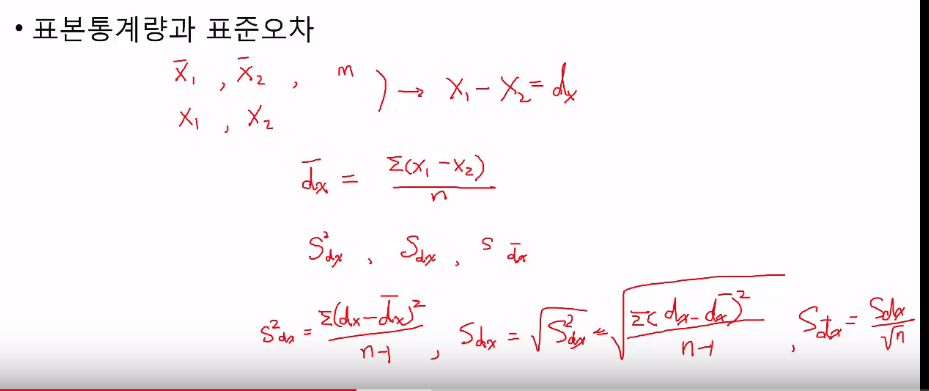 • 표본통계량과 표준오차
x̄₁ , x̄₂ , n ) → x₁ - x₂ = dₓ
x₁ , x₂
d̄ₓ = Σ(x₁ - x₂) / n
S²dₓ , Sdₓ , S d̄ₓ
S²dₓ = Σ(dₓ - d̄ₓ)² / n-1 , Sdₓ = √S²dₓ = √(Σ(dₓ - d̄ₓ)² / n-1) , Sd̄ₓ = Sdₓ / √n